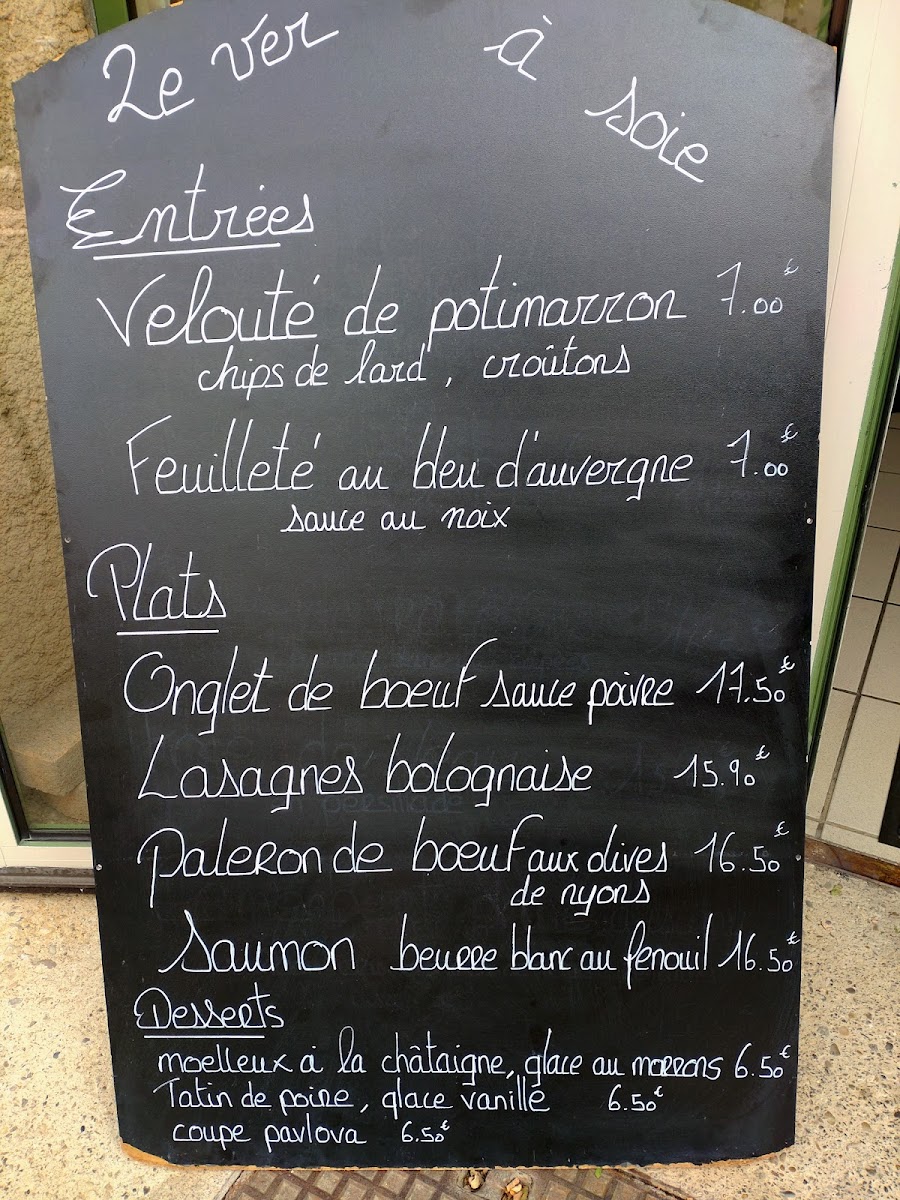 Le ver à soie
Entrées
Velouté de potimarron 7.00€
chips de lard, croûtons
Feuilleté au bleu d'auvergne 7.00€
sauce au noix
Plats
Onglet de boeuf sauce poivre 17.50€
Lasagnes bolognaise 15.90€
Paleron de boeuf aux olives 16.50€
de nyons
Saumon beurre blanc au fenouil 16.50€
Desserts
moelleux à la châtaigne, glace au marrons 6.50€
Tatin de poire, glace vanille 6.50€
coupe pavlova 6.50€